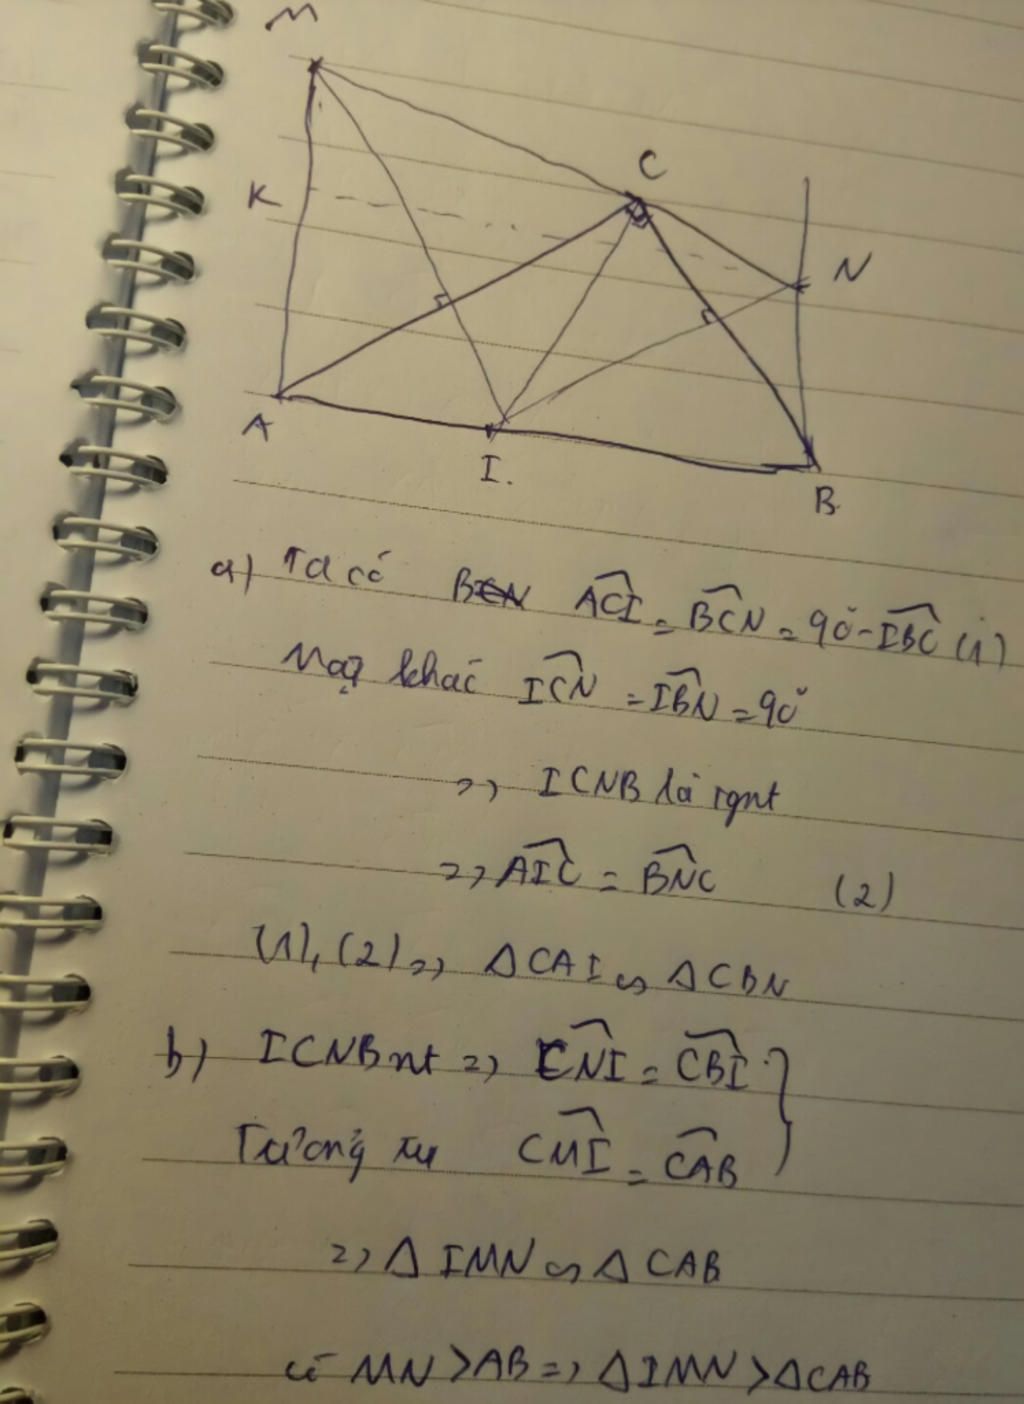 M
C
K
N
A
I.
B
a) Ta có ACI = BCN = 90° - IBC (1)
Mặt khác ICN = IBN = 90°
=> ICNB là tgnt
=> AIC = BNC (2)
(1), (2) => ΔCAI ∽ ΔCBN
b) ICNB nt => CNI = CBI }
Tương tự CMI = CAB
=> ΔIMN ∽ ΔCAB
có MN > AB => ΔIMN > ΔCAB